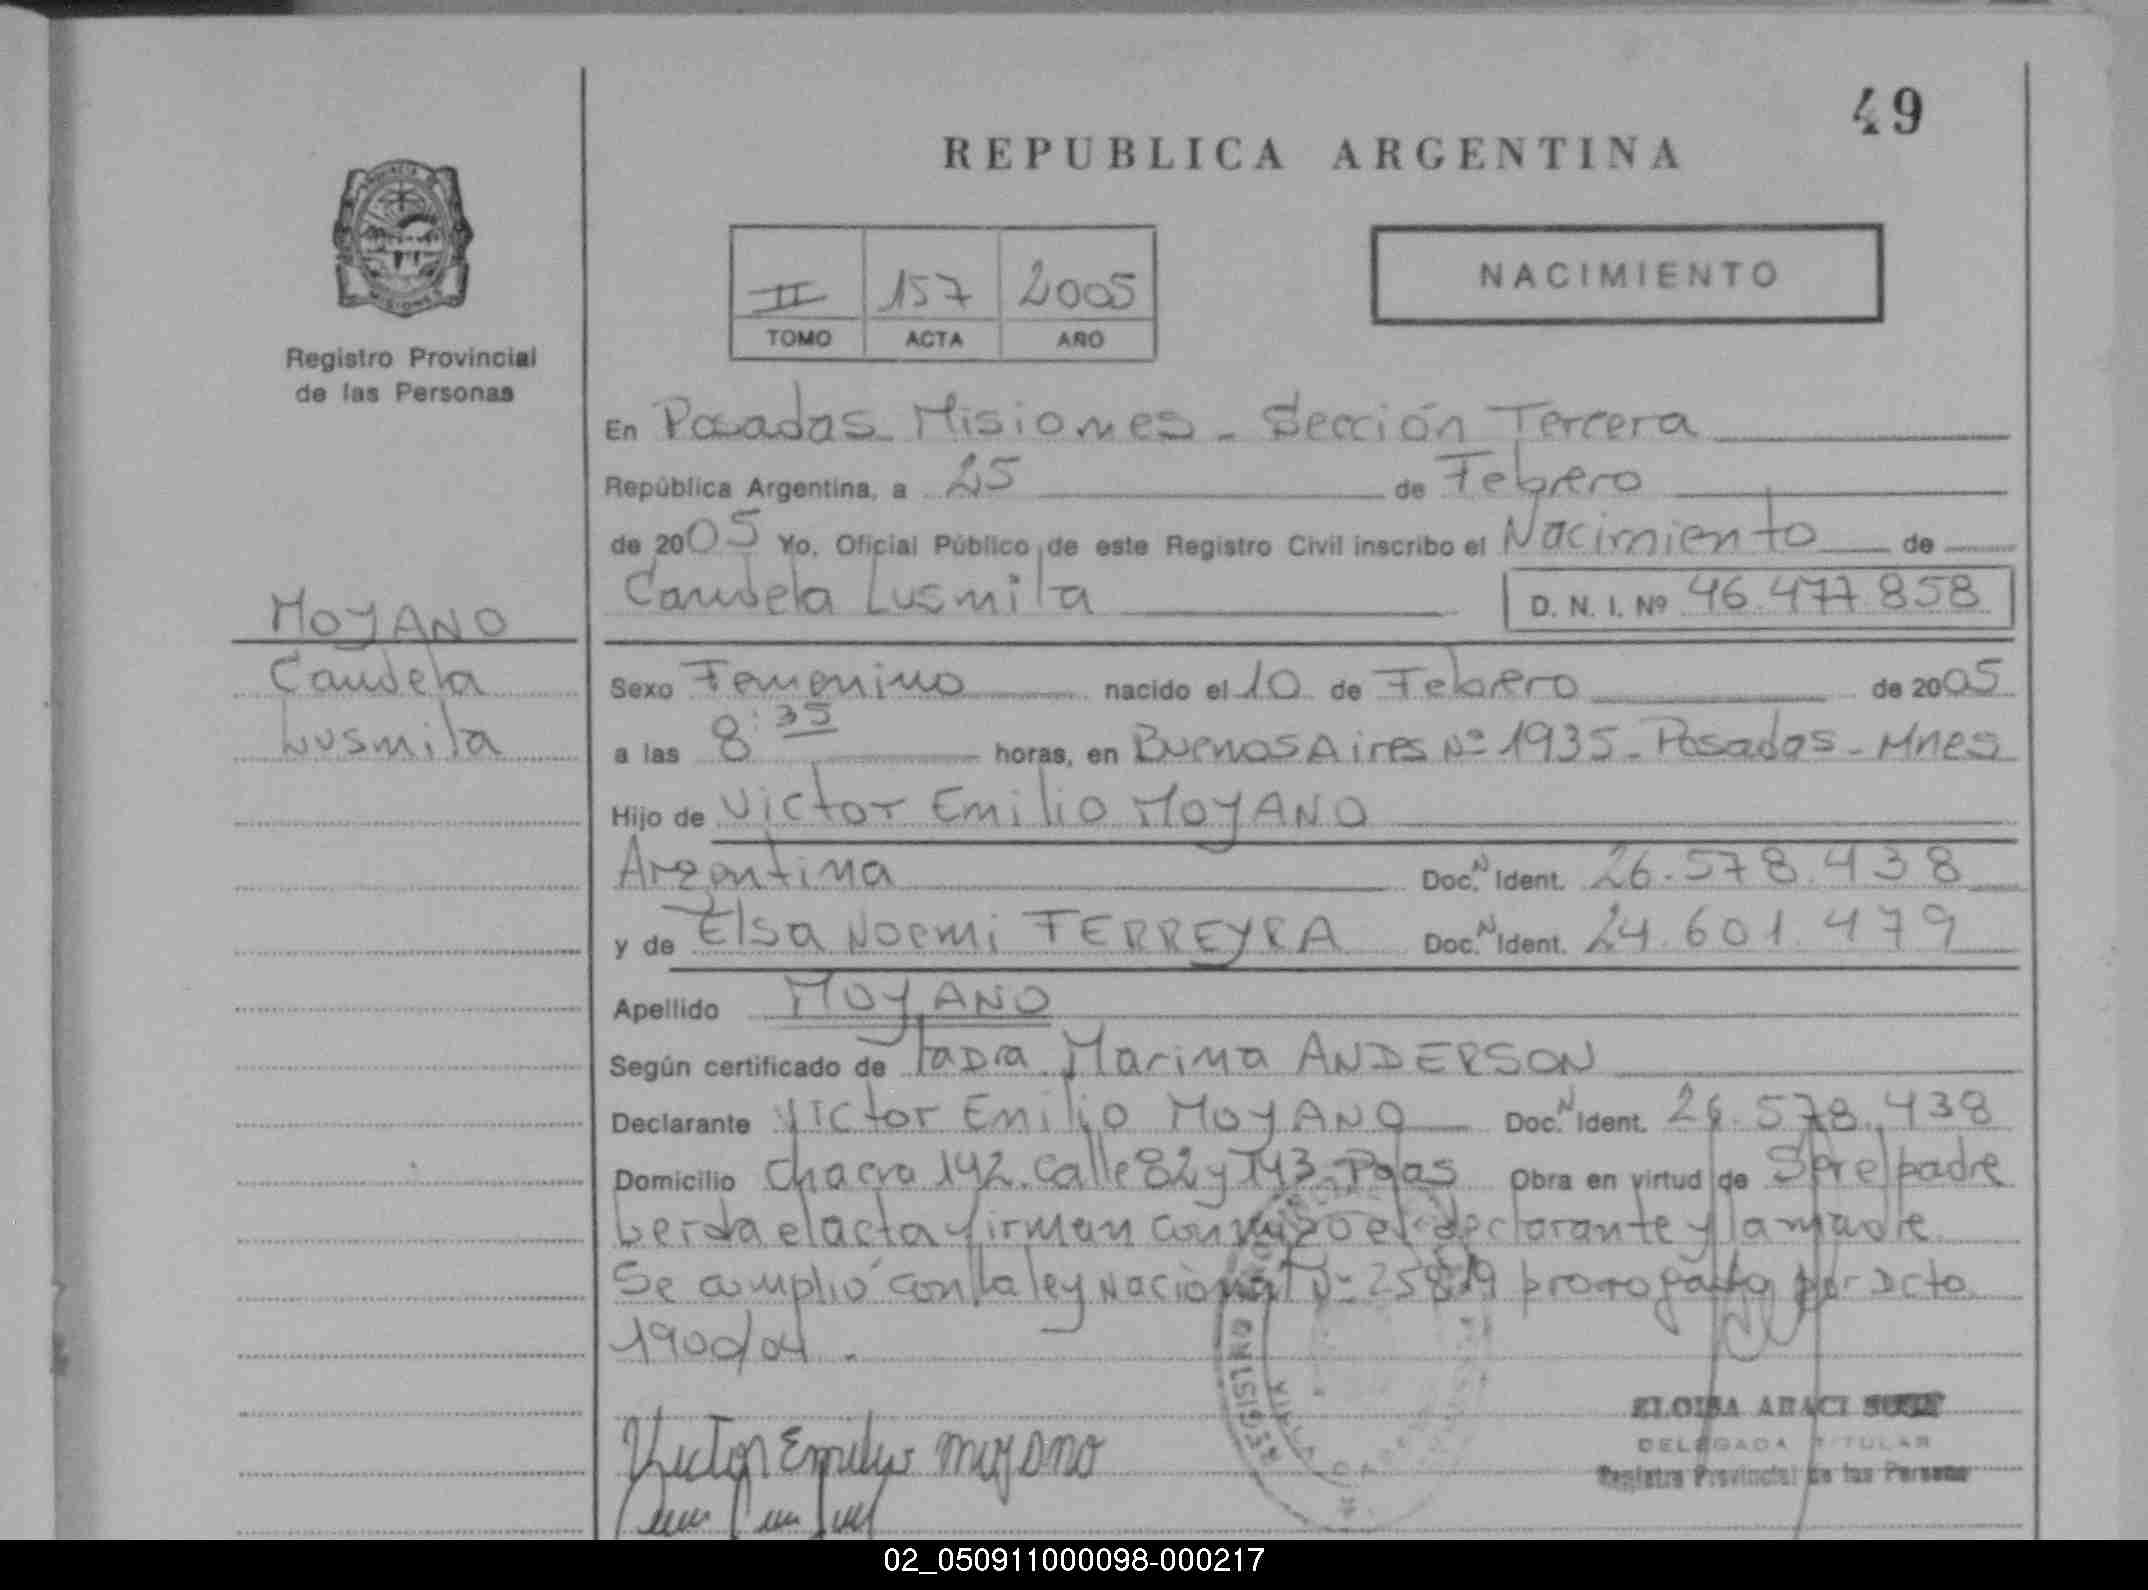 49
REPUBLICA ARGENTINA
II 157 2005
TOMO ACTA AÑO
NACIMIENTO
Registro Provincial
de las Personas
En Posadas Misiones - Sección Tercera
República Argentina, a 25 de Febrero
de 2005 Yo, Oficial Público de este Registro Civil inscribo el Nacimiento de
Candela Lusmila D. N. I. Nº 46.477.858
MOYANO
Candela
Lusmila
Sexo Femenino nacido el 10 de Febrero de 2005
a las 8:35 horas, en Buenos Aires Nº 1935 - Posadas - Mnes
Hijo de Victor Emilio MOYANO
Argentina Doc. N Ident. 26.578.438
y de Elsa Noemi FERREYRA Doc. N Ident. 24.601.479
Apellido MOYANO
Según certificado de la Dra Marina ANDERSON
Declarante Victor Emilio MOYANO Doc. N Ident. 26.578.438
Domicilio Chacra 142. Calle 82 y 143 - Pdas Obra en virtud de Ser el padre
Leida el acta firman conmigo el declarante y la madre
Se cumplió con la ley Nacional Nº prorrogado por Dcto
1900/04.
Victor Emilio moyano
ELOISA ARACI
DELEGADA TITULAR
Registro Provincial de las Personas
REGISTRO
02_050911000098-000217